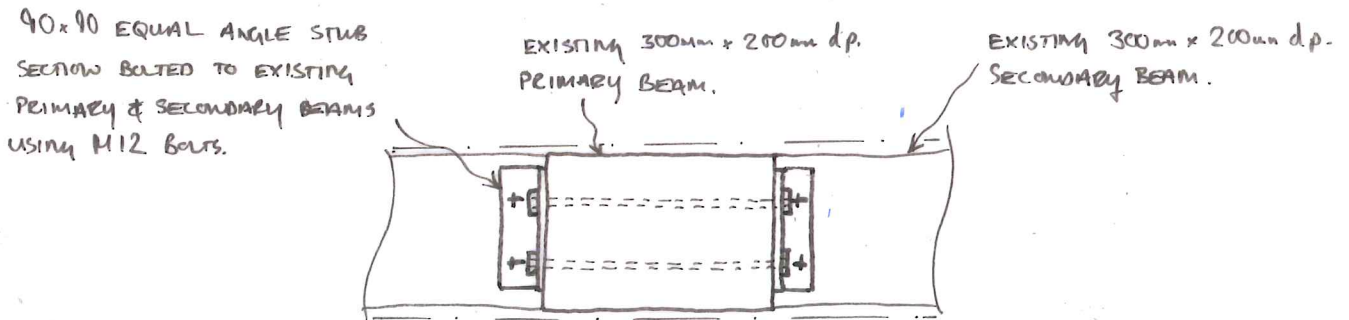 90x90 EQUAL ANGLE STUB
SECTION BOLTED TO EXISTING
PRIMARY & SECONDARY BEAMS
USING M12 BOLTS.
EXISTING 300mm x 200mm dp.
PRIMARY BEAM.
EXISTING 300mm x 200mm dp.
SECONDARY BEAM.